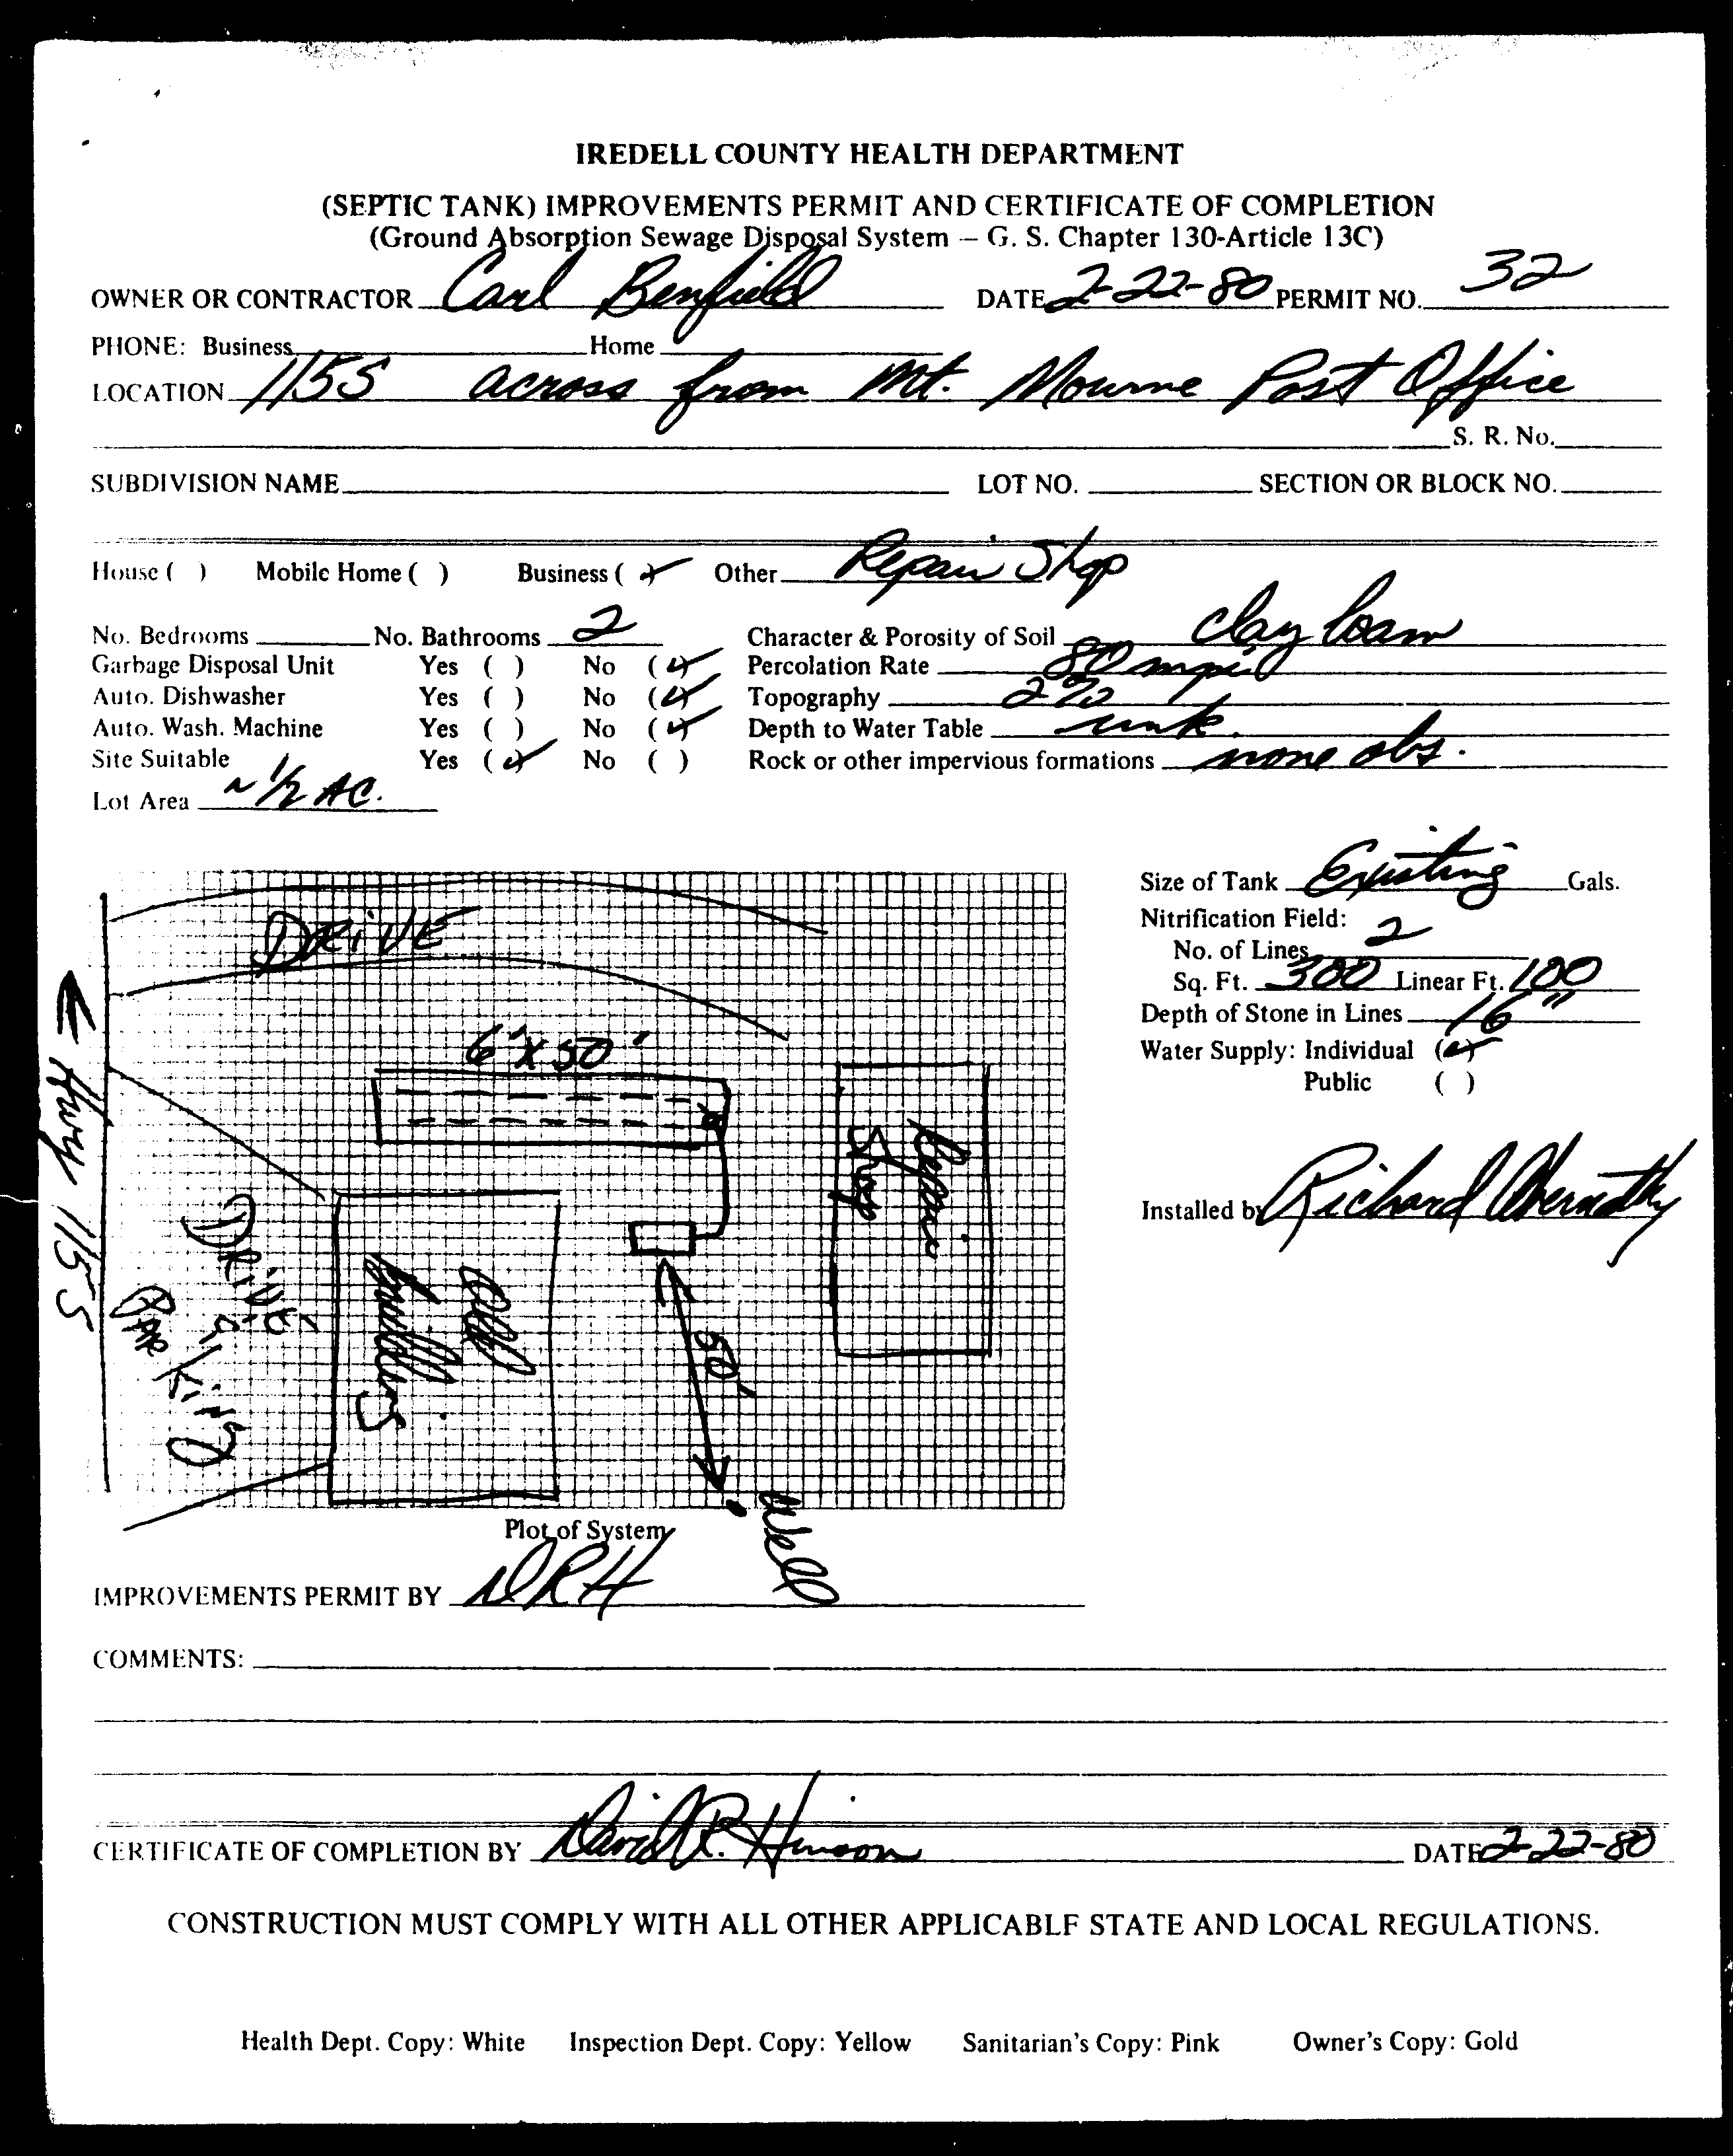 IREDELL COUNTY HEALTH DEPARTMENT
(SEPTIC TANK) IMPROVEMENTS PERMIT AND CERTIFICATE OF COMPLETION
(Ground Absorption Sewage Disposal System — G. S. Chapter 130-Article 13C)
OWNER OR CONTRACTOR Carl Benfield DATE 2-22-80 PERMIT NO. 32
PHONE: Business Home
LOCATION 115S across from Mt. Mourne Post Office
S. R. No.
SUBDIVISION NAME LOT NO. SECTION OR BLOCK NO.
House ( ) Mobile Home ( ) Business (✓) Other Repair Shop
No. Bedrooms No. Bathrooms 2 Character & Porosity of Soil clay loam
Garbage Disposal Unit Yes ( ) No (✓) Percolation Rate 80 mpi
Auto. Dishwasher Yes ( ) No (✓) Topography 2%
Auto. Wash. Machine Yes ( ) No (✓) Depth to Water Table unk.
Site Suitable Yes (✓) No ( ) Rock or other impervious formations none obs.
Lot Area ~ 1/2 AC.
Size of Tank Existing Gals.
Nitrification Field:
No. of Lines 2
Sq. Ft. 300 Linear Ft. 100
Depth of Stone in Lines 16"
Water Supply: Individual (✓)
Public ( )
Installed by Richard Abernathy
DRIVE
6' X 50'
← Hwy 115 S
Drive & Parking
Old building
Repair Shop
50'
Well
Plot of System
IMPROVEMENTS PERMIT BY DRH
COMMENTS:
CERTIFICATE OF COMPLETION BY David R. Hinson DATE 2-22-80
CONSTRUCTION MUST COMPLY WITH ALL OTHER APPLICABLE STATE AND LOCAL REGULATIONS.
Health Dept. Copy: White Inspection Dept. Copy: Yellow Sanitarian's Copy: Pink Owner's Copy: Gold